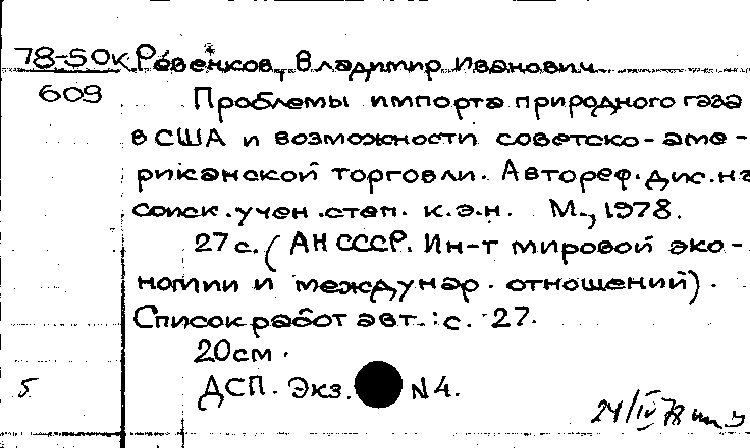 78-50к Ровенков, Владимир Иванович
609 Проблемы импорта природного газа
в США и возможности советско-аме-
риканской торговли. Автореф. дис. на
соиск. учен. степ. к.э.н. М., 1978.
27 с. (АН СССР. Ин-т мировой эко-
номии и междунар. отношений).
Список работ авт.: с. 27.
20 см.
5 ДСП. Экз. N 4.
24/IV 78